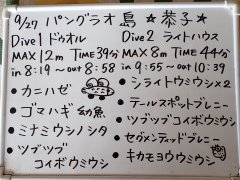 9/27 パングラオ島 ☆恭子☆
Dive1 ドゥオル
MAX 12m TIME 39分
in 8:19 → out 8:58
Dive2 ライトハウス
MAX 8m TIME 44分
in 9:55 → out 10:39
・カニハゼ
・ゴマハギ 幼魚
・ミナミウシノシタ
・ツブツブコイボウミウシ
・シライトウミウシ×2
・テールスポットブレニー
・ツブツブコイボウミウシ
・セグメンティッドブレニー
・キカモヨウウミウシ